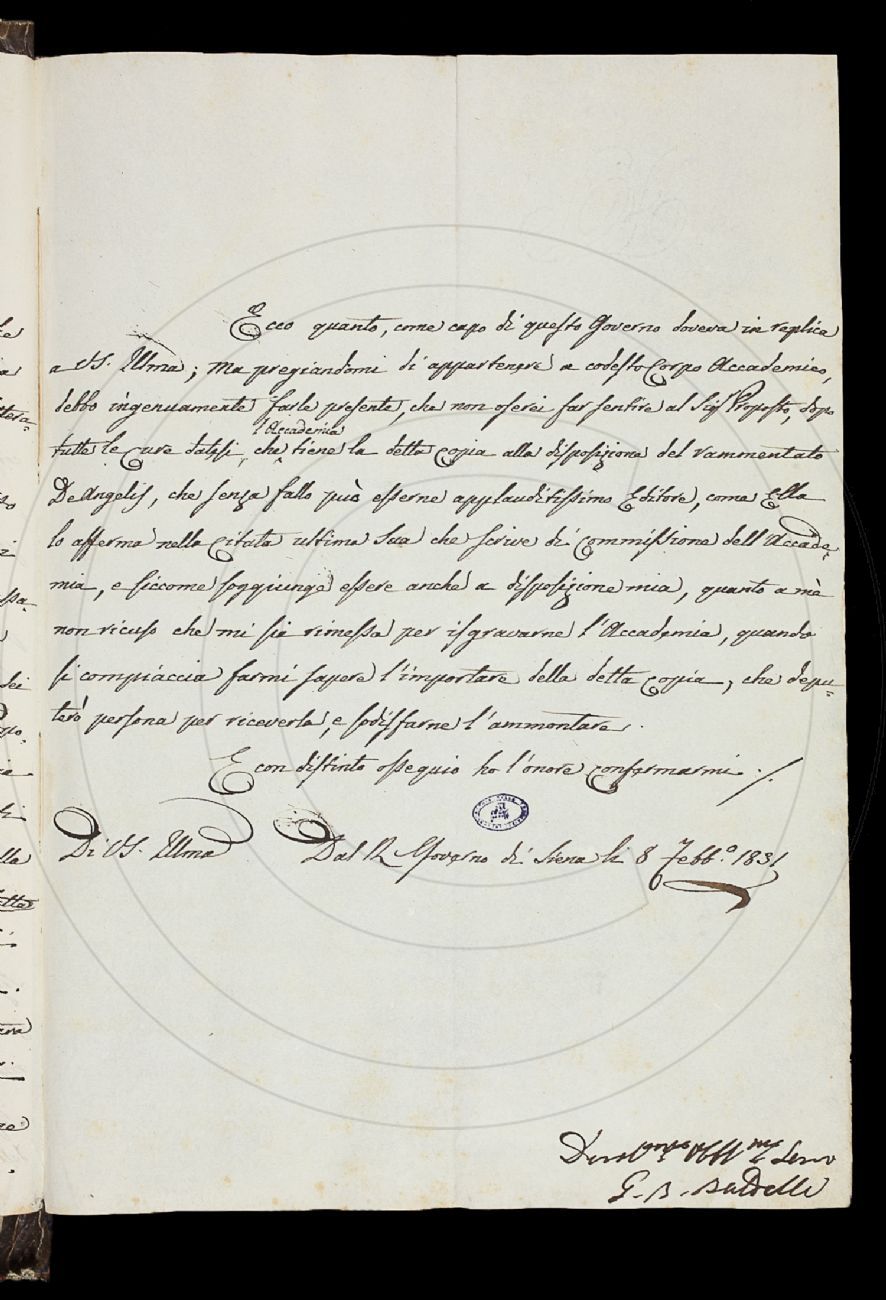 Ecco quanto, come capo di questo Governo doveva in replica
a VS. Illma; ma pregiandomi di appartenere a codesto Corpo Accademico,
debbo ingenuamente farle presente, che non oserei far sentire al Sigr Proposto, dopo
l'Accademia
tutte le Cure datesi, che tiene la detta Copia alla disposizione del rammentato
De Angelis, che senza fallo può esserne applauditissimo Editore, come Ella
lo afferma nella Citata ultima Sua che scrive di Commissione dell'Accade=
mia, e siccome soggiunge essere anche a disposizione mia, quanto a mè
non ricuso che mi sia rimessa per isgravarne l'Accademia, quando
si compiaccia farmi sapere l'importare della detta Copia, che depu=
terò persona per riceverla, e sodisfarne l'ammontare.
E con distinto ossequio ho l'onore confermarmi ./.
Di VS. Illma
Dal R. Governo di Siena li 8 Febb.o 1831
Devot.mo Obbl.mo Serv
G. B. Baldelli